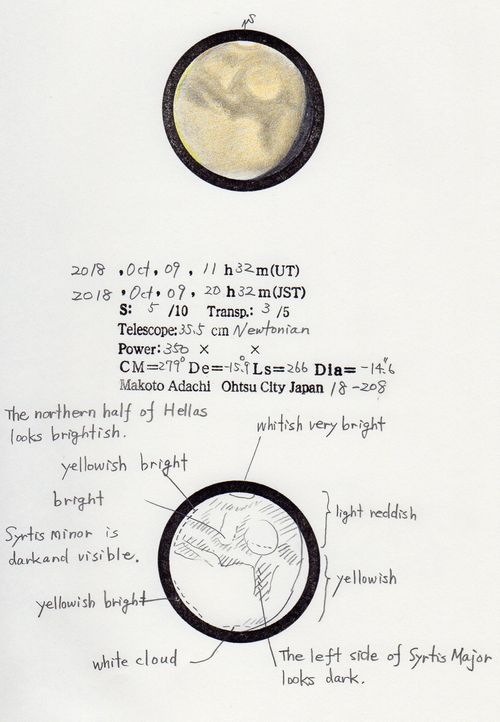 S
2018 , Oct , 09 , 11 h 32 m (UT)
2018 , Oct , 09 , 20 h 32 m (JST)
S: 5 /10 Transp.: 3 /5
Telescope: 35.5 cm Newtonian
Power: 350 × ×
CM=279° De=-15.9° Ls=266 Dia=-14.″6
Makoto Adachi Ohtsu City Japan 18-208
The northern half of Hellas
looks brightish.
whitish very bright
yellowish bright
bright
light reddish
Syrtis minor is
dark and visible.
yellowish
yellowish bright
white cloud
The left side of Syrtis Major
looks dark.